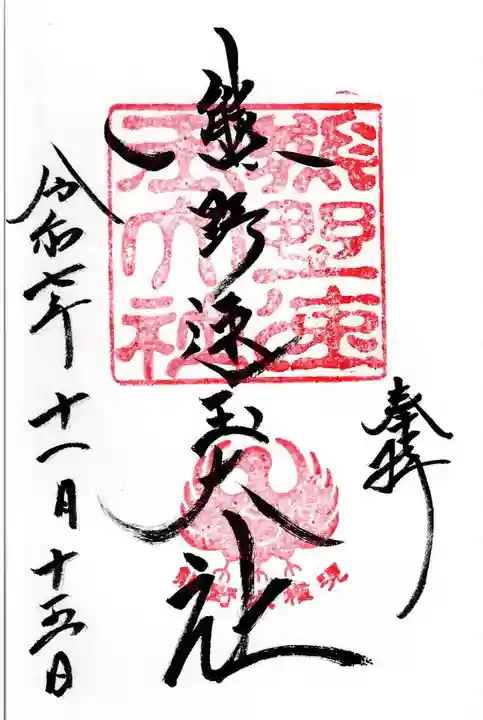 奉拝
熊野速玉大社
熊野速玉大社
熊野大権現
令和七年十一月十五日